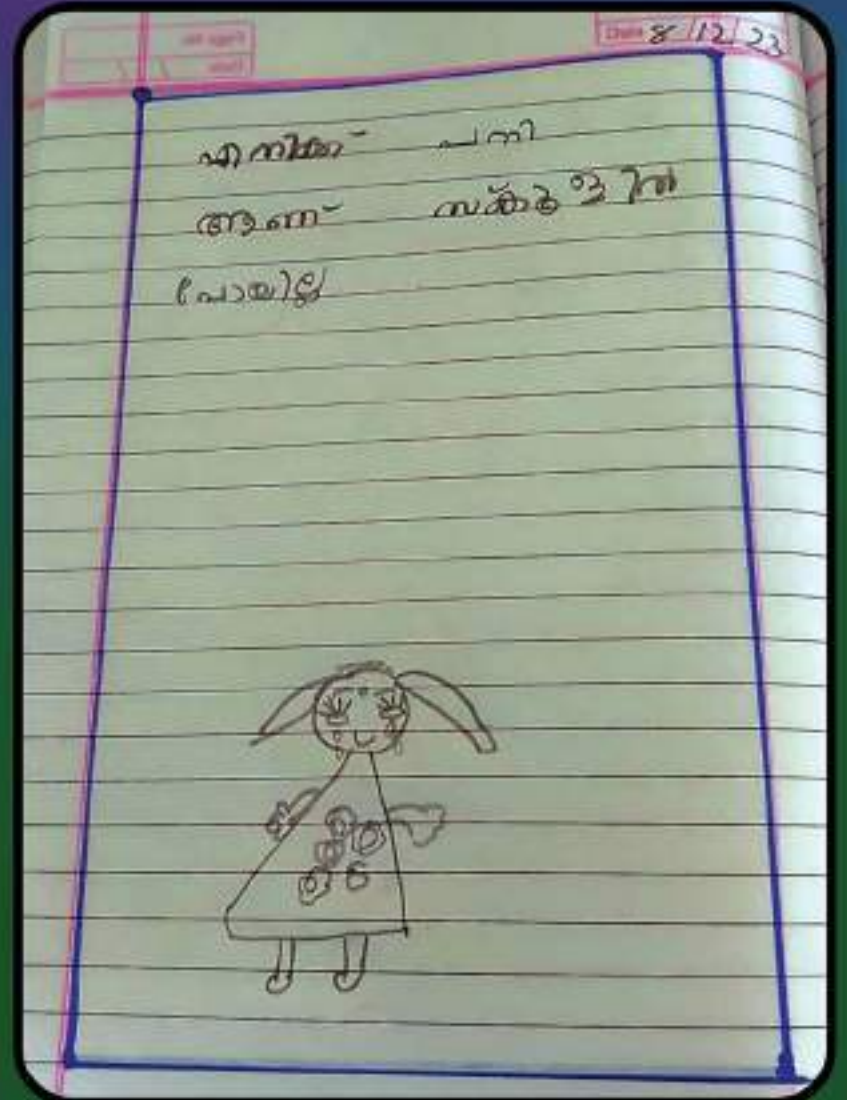 Date 8/12/23
എനിക്ക് പനി
ആണ് സ്കൂളിൽ
പോയില്ല